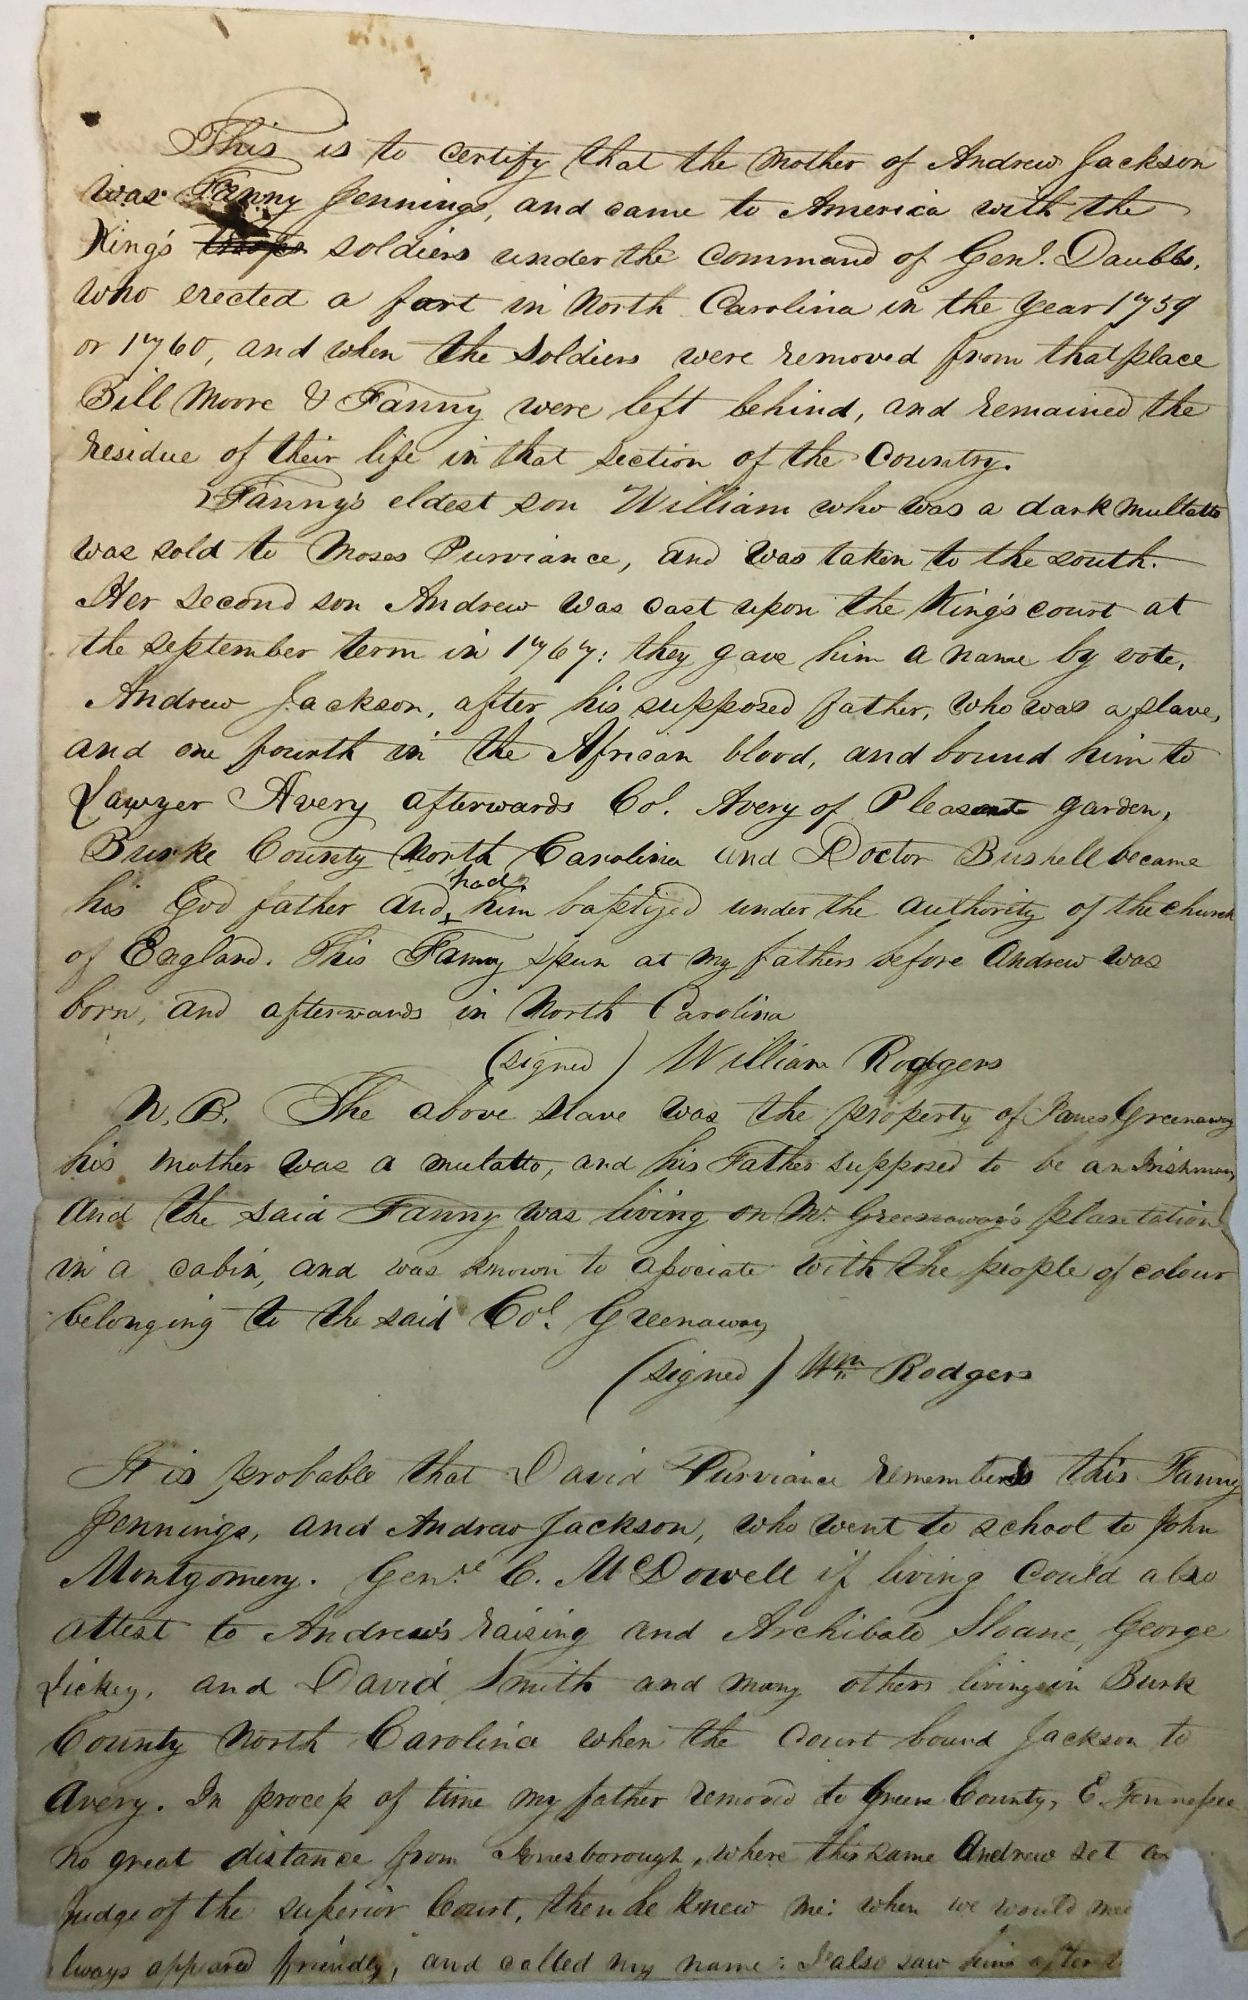 This is to certify that the mother of Andrew Jackson
was Fanny Jennings, and came to America with the
King's troops soldiers under the command of Genl. Daubbs,
who erected a fort in North Carolina in the year 1759
or 1760, and when the soldiers were removed from that place
Bill Moore & Fanny were left behind, and remained the
residue of their life in that section of the Country.
Fanny's eldest son William who was a dark multatto
was sold to Moses Purviance, and was taken to the south.
Her second son Andrew was cast upon the King's court at
the september term in 1767: they gave him a name by vote,
Andrew Jackson, after his supposed father, who was a slave,
and one fourth in the African blood, and bound him to
Lawyer Avery afterwards Col. Avery of Pleasent garden,
Burke County North Carolina and Doctor Bushell became
his God father and had him baptized under the authority of the church
of England. This Fanny spun at my fathers before Andrew was
born, and afterwards in North Carolina
(signed) William Rodgers
N.B. The above slave was the property of James Greenaway
his mother was a mulatto, and his Father supposed to be an Irishman
And the said Fanny was living on Mr. Greenaway's plantation
in a cabin, and was known to associate with the people of colour
belonging to the said Col. Greenaway
(signed) Wm Rodgers
It is probable that David Purviance remembers this Fanny
Jennings, and Andrew Jackson, who went to school to John
Montgomery. Genrl C. McDowell if living could also
attest to Andrew's raising and Archibald Sloane, George
Lickey, and David Smith and many others living in Burk
County North Carolina when the Court bound Jackson to
Avery. In process of time my father removed to Green County, E. Tennessee
no great distance from Jonesborough, where this same Andrew set as
Judge of the superior Court, then he knew me: when we would
lways appeared friendly, and called my name: I also saw him after